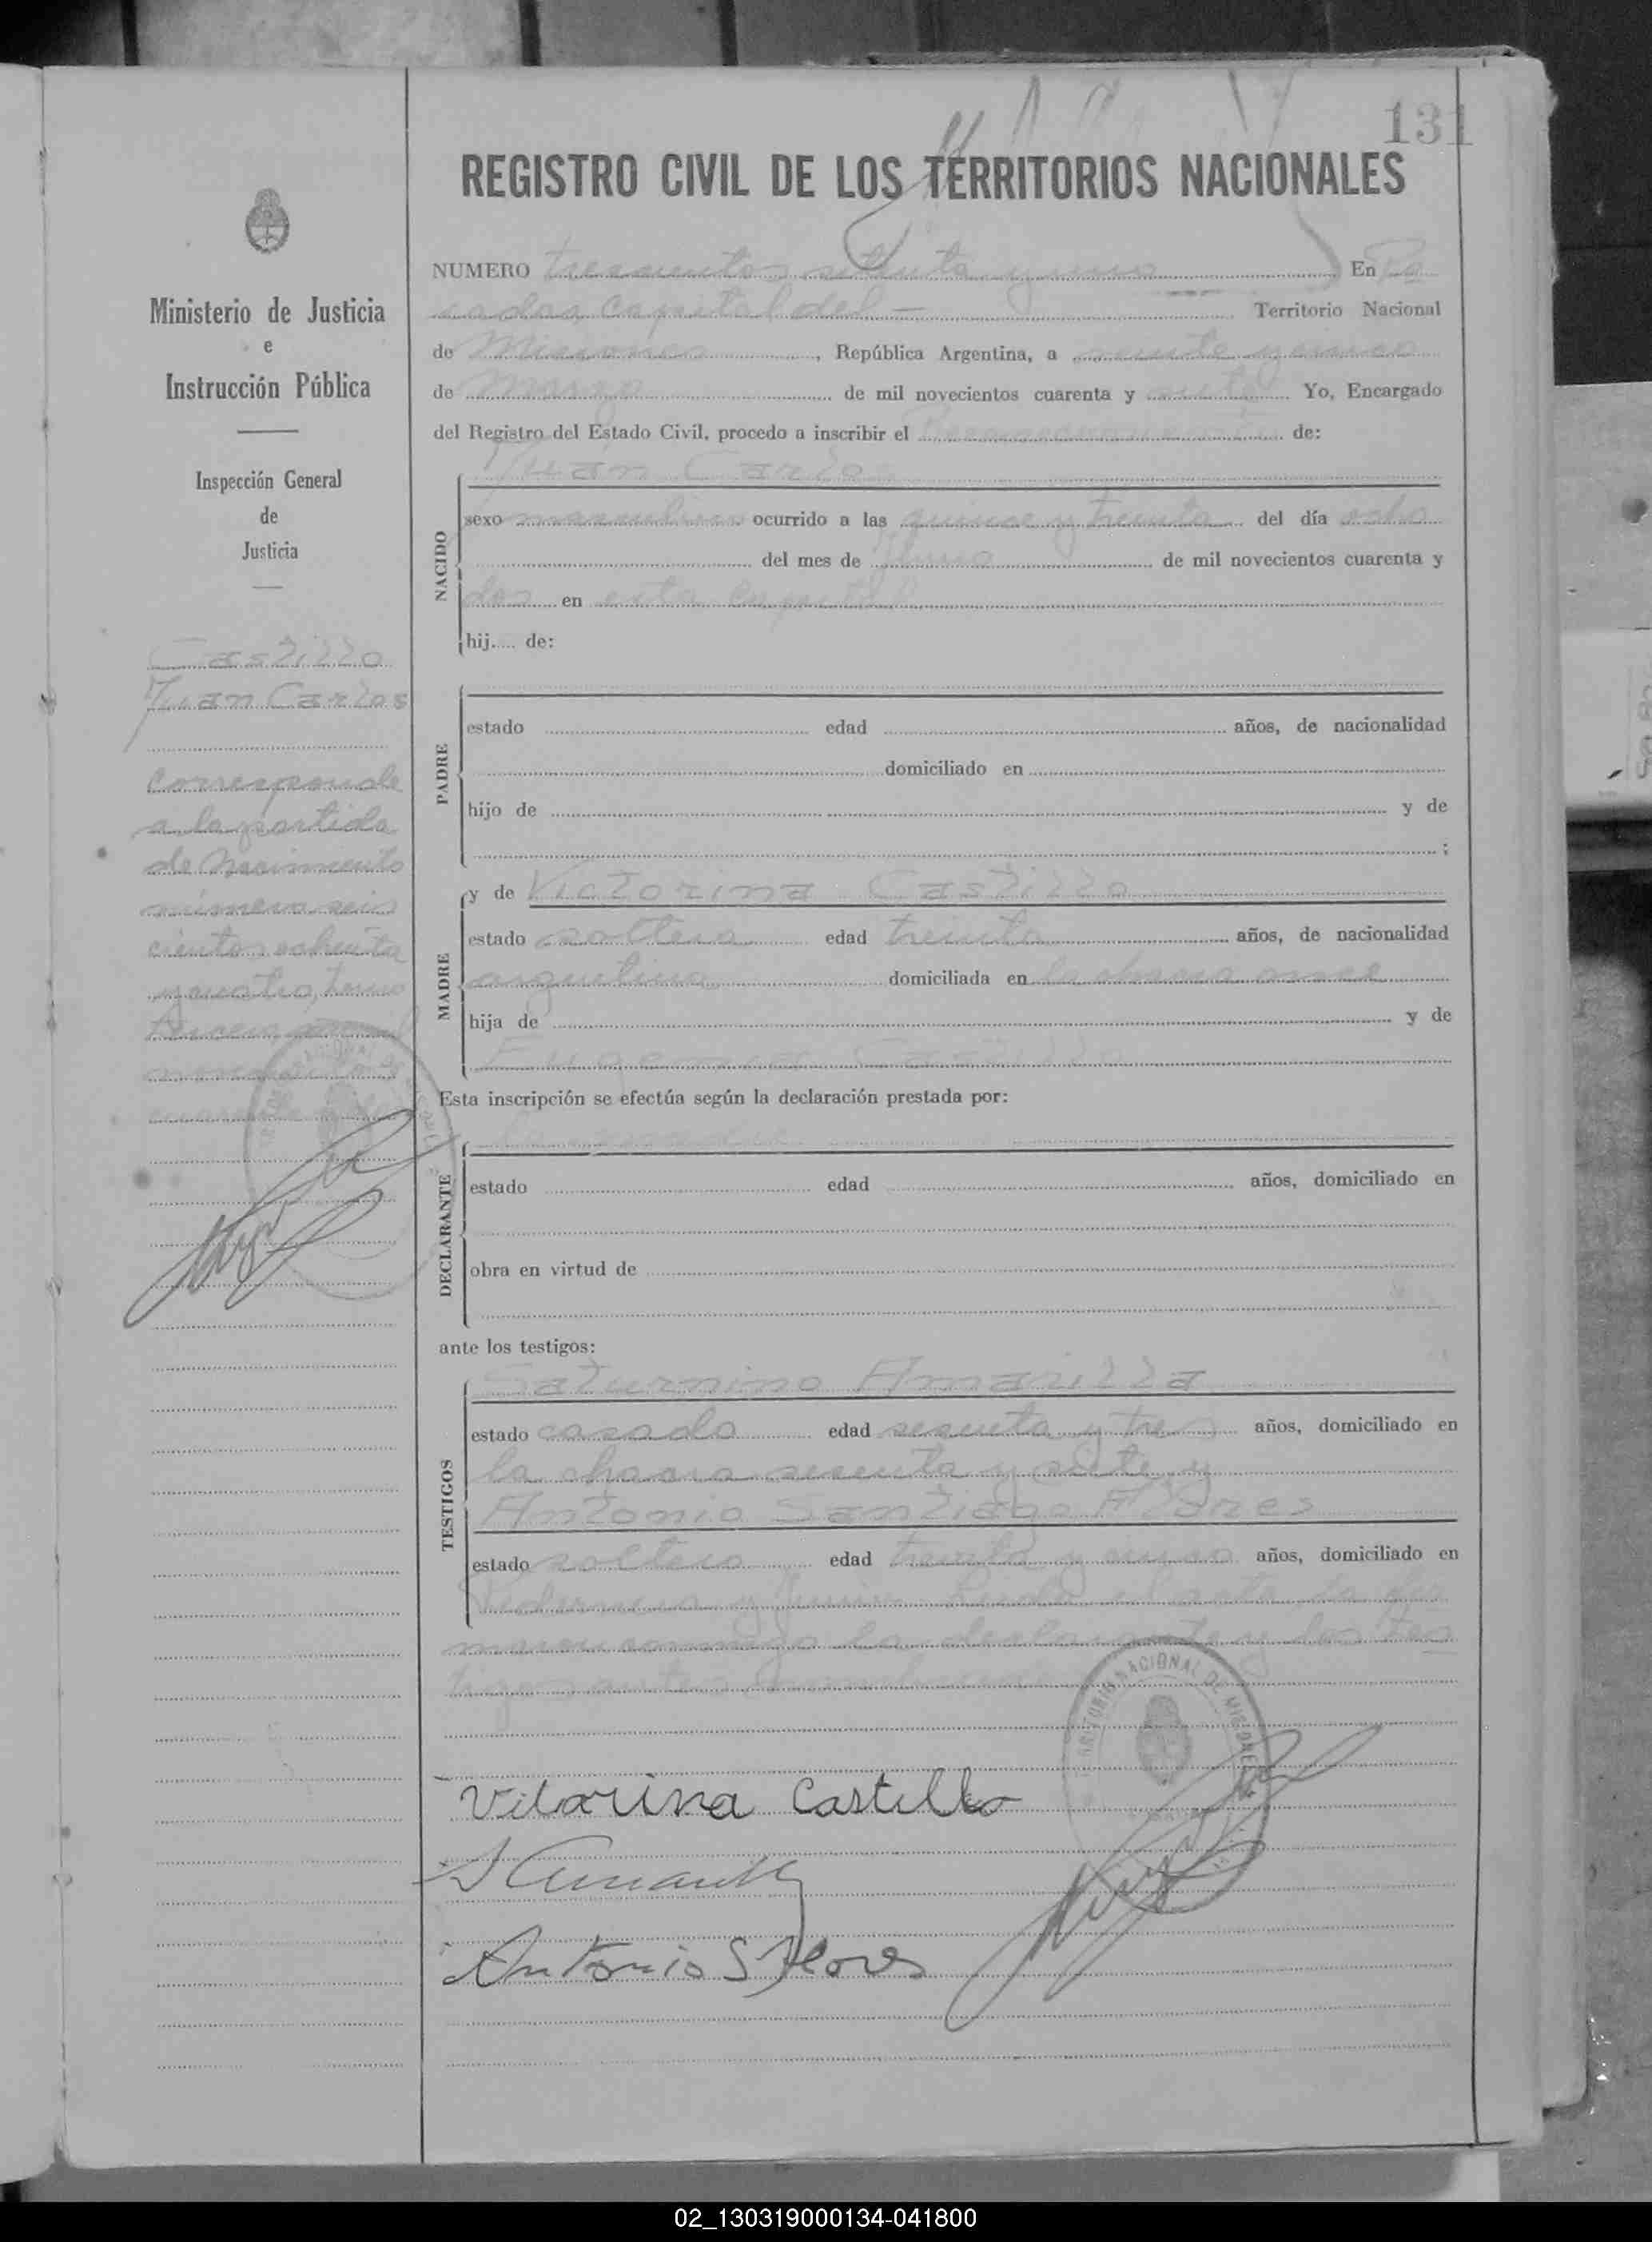 131
REGISTRO CIVIL DE LOS TERRITORIOS NACIONALES
Ministerio de Justicia
e
Instrucción Pública
Inspección General
de
Justicia
Castillo
Juan Carlos
corresponde
a la partida
de nacimiento
número seis
cientos ochenta
y cuatro, tomo
NUMERO trescientos setenta y uno En Po
sadas Capital del - Territorio Nacional
de Misiones, República Argentina, a veinte y cinco
de Marzo de mil novecientos cuarenta y siete Yo, Encargado
del Registro del Estado Civil, procedo a inscribir el Reconocimiento de:
Juan Carlos
NACIDO
sexo masculino ocurrido a las quince y treinta del día ocho
del mes de de mil novecientos cuarenta y
dos en esta Capital
hij.... de:
PADRE
estado edad años, de nacionalidad
domiciliado en
hijo de y de
;
MADRE
y de Victorina Castillo
estado soltera edad treinta años, de nacionalidad
argentina domiciliada en la chacra once
hija de y de
Eugenia Castillo
Esta inscripción se efectúa según la declaración prestada por:
DECLARANTE
estado edad años, domiciliado en
obra en virtud de
ante los testigos:
TESTIGOS
Saturnino Amarilla
estado casado edad sesenta y tres años, domiciliado en
la chacra sesenta y siete, y
Antonio Santiago Flores
estado soltero edad treinta y cinco años, domiciliado en
Leida el acta la fir
man conmigo la declarante y los tes
tigos antes
TERRITORIO NACIONAL DE MISIONES
Vitorina Castillo
S Amarilla
Antonio S Flores
02_130319000134-041800